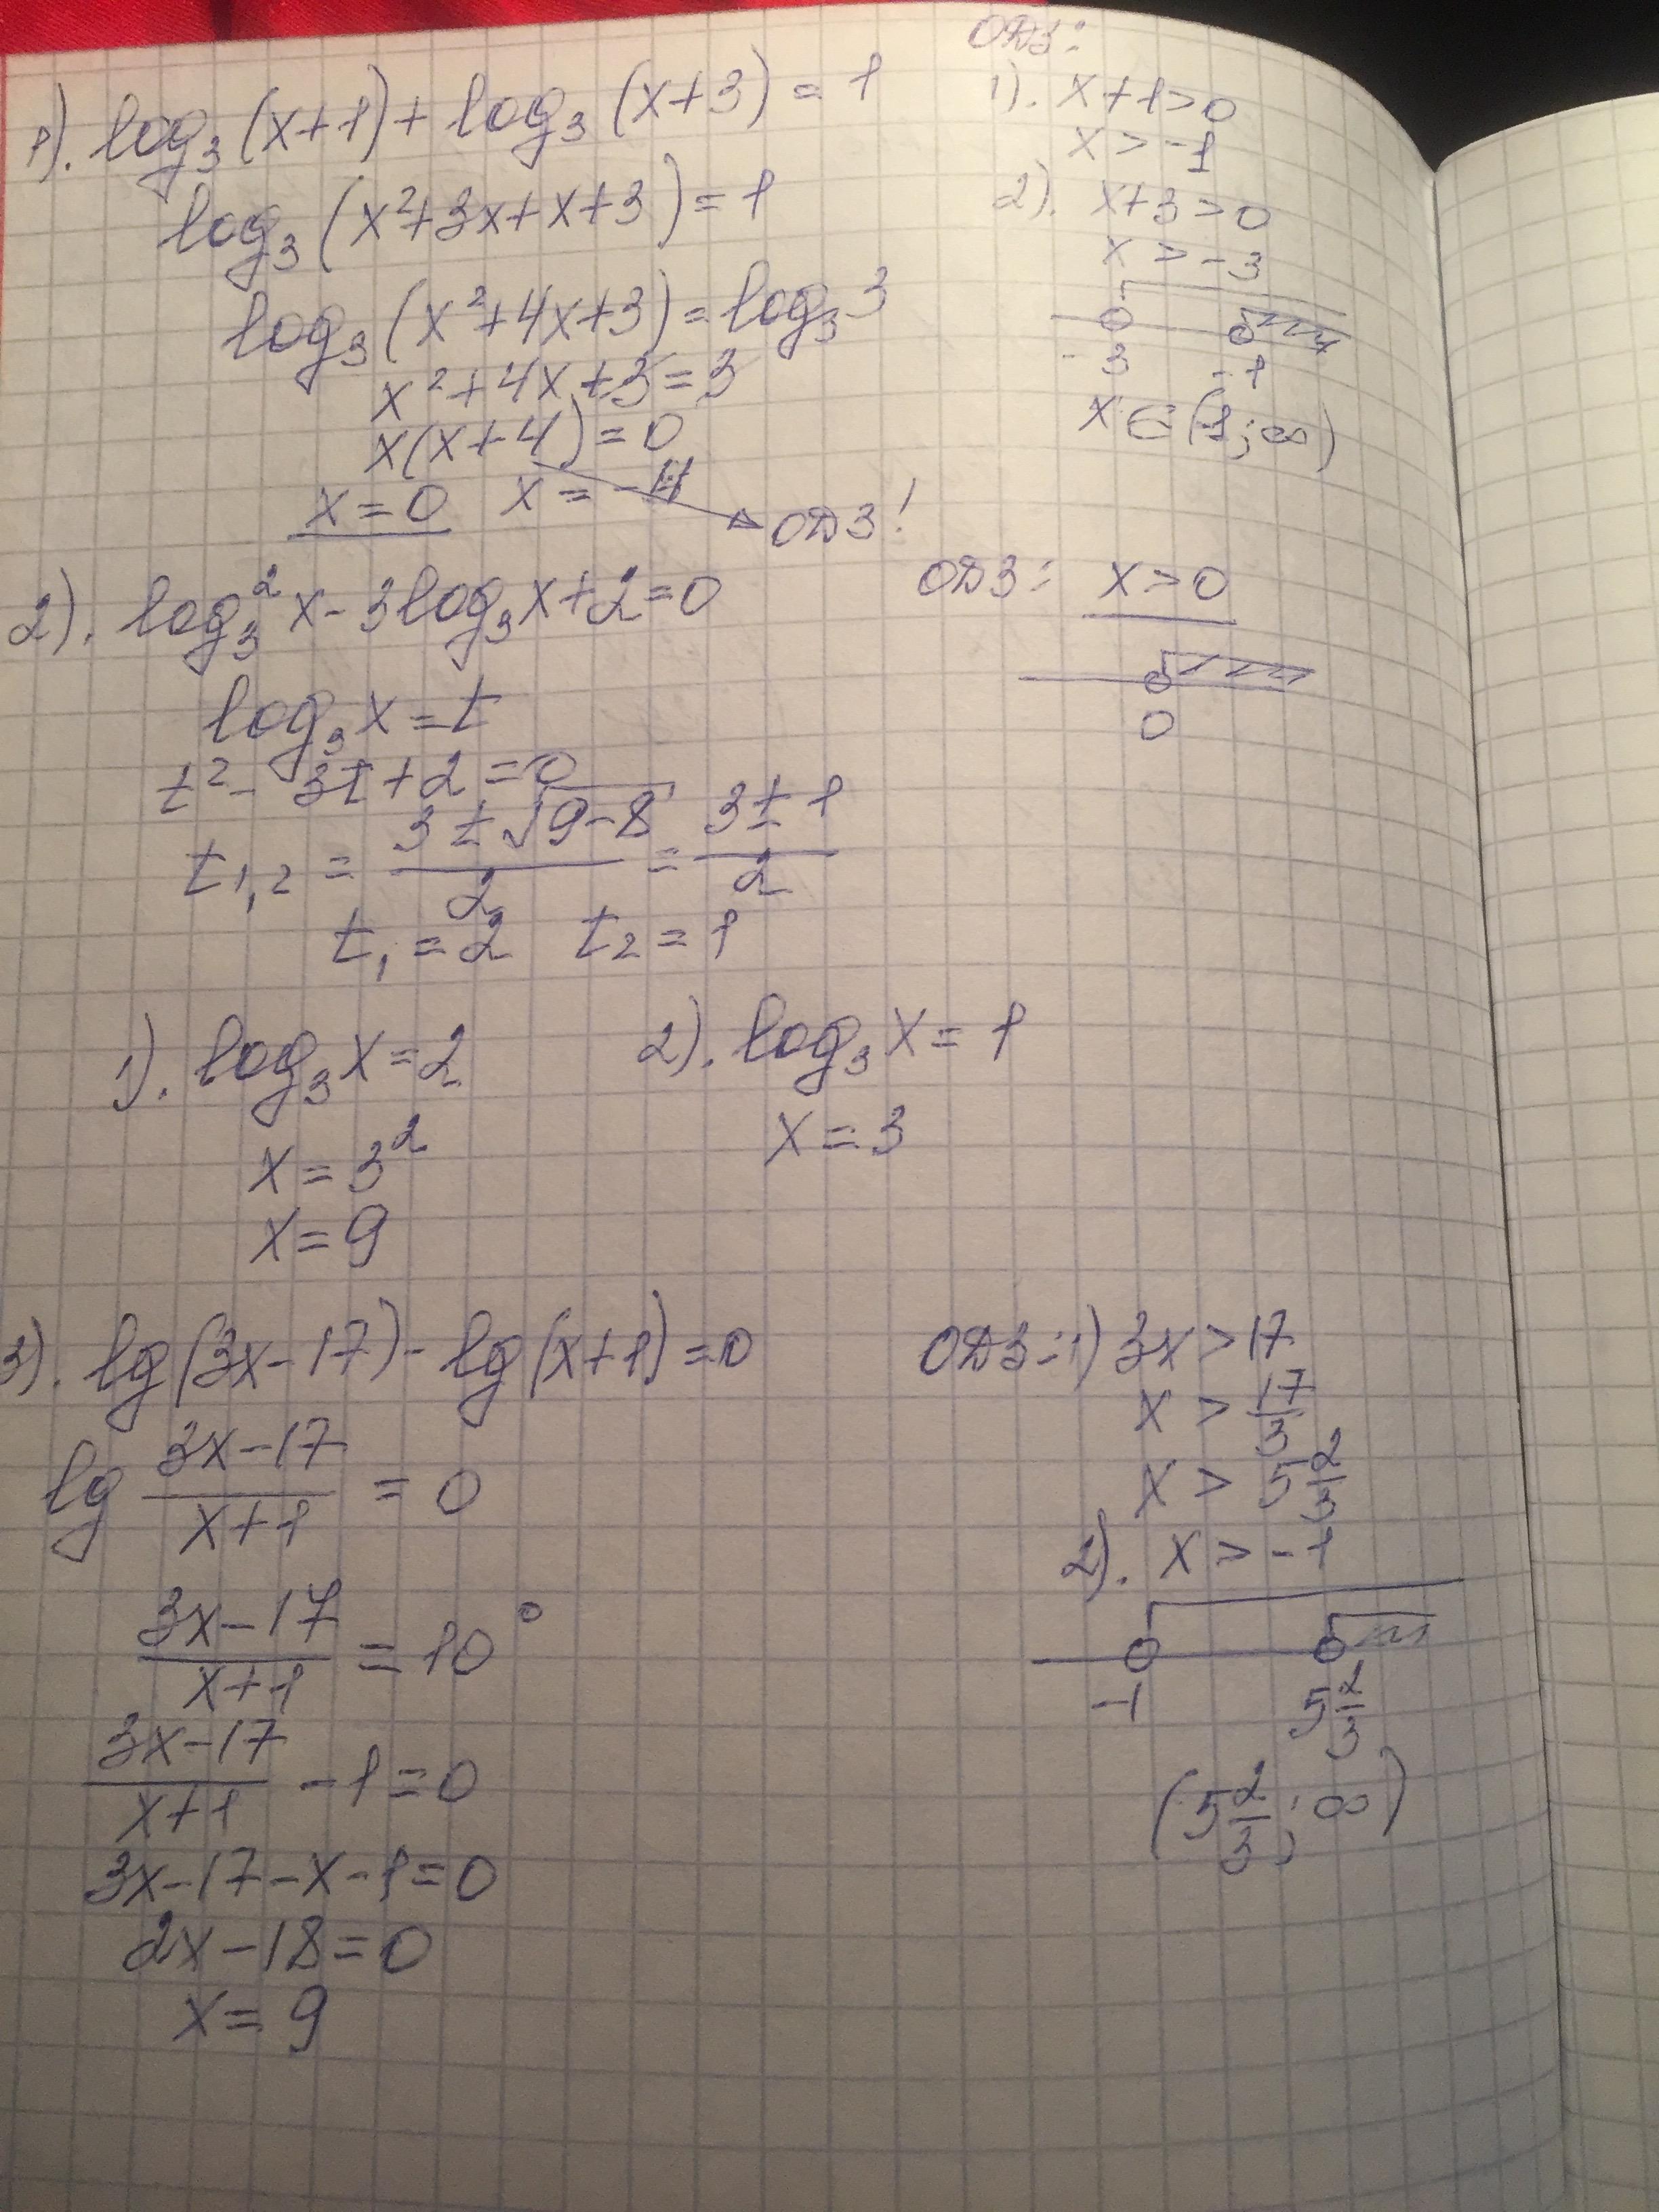 1). log₃(x+1)+log₃(x+3)=1
log₃(x²+3x+x+3)=1
log₃(x²+4x+3)=log₃3
x²+4x+3=3
x(x+4)=0
x=0 x=-4
ОДЗ!
ОДЗ:
1). x+1>0
x>-1
2). x+3>0
x>-3
-3 -1
x∈(-1;∞)
2). log₃²x-3log₃x+2=0
log₃x=t
t²-3t+2=0
t₁,₂=(3±√(9-8))/2=(3±1)/2
t₁=2 t₂=1
ОДЗ: x>0
0
1). log₃x=2
x=3²
x=9
2). log₃x=1
x=3
3). lg(3x-17)-lg(x+1)=0
lg (3x-17)/(x+1) = 0
(3x-17)/(x+1) = 10⁰
(3x-17)/(x+1) -1=0
3x-17-x-1=0
2x-18=0
x=9
ОДЗ: 1) 3x>17
x > 17/3
x > 5 2/3
2). x>-1
-1 5 2/3
(5 2/3; ∞)